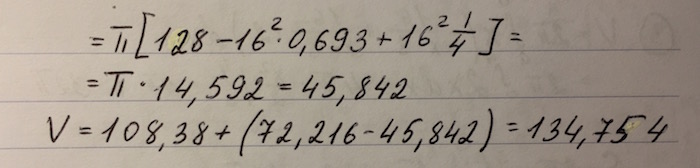 = π[128 - 16²·0,693 + 16² 1/4] =
= π · 14,592 = 45,842
V = 108,38 + (72,216 - 45,842) = 134,754